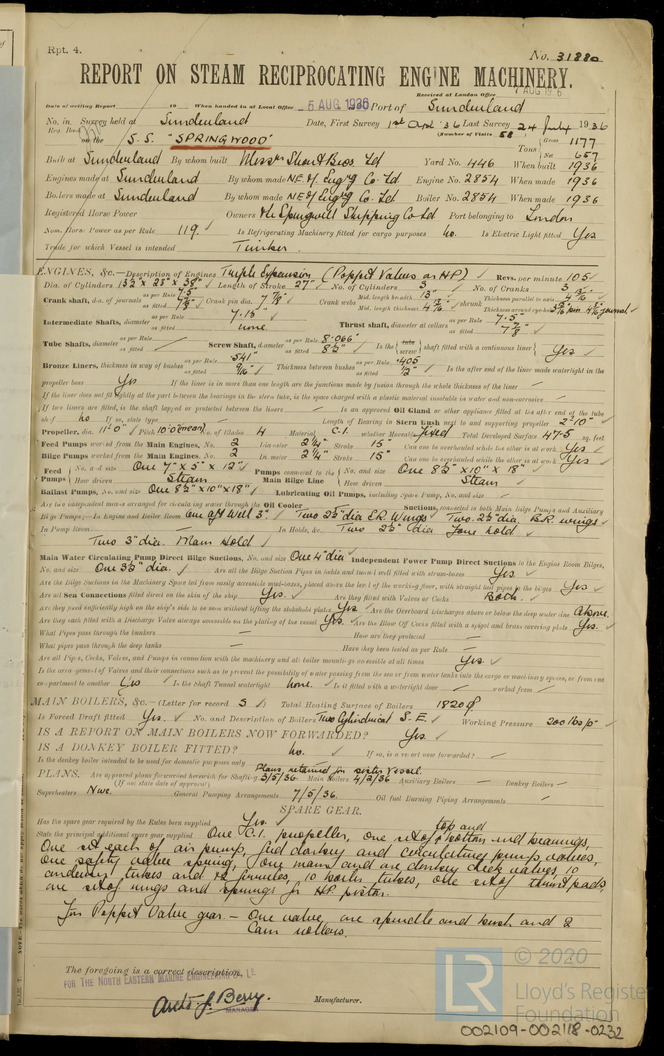 Rpt. 4.
No. 31880
REPORT ON STEAM RECIPROCATING ENGINE MACHINERY.
Received at London Office
Date of writing Report 19 When handed in at Local Office 5 AUG 1936 Port of Sunderland
No. in Survey held at Sunderland Date, First Survey 1st Apl '36 Last Survey 24 July 1936
Reg. Book. (Number of Visits 58
on the S.S. "SPRINGWOOD" Tons Gross 1177
Net 657
Built at Sunderland By whom built Messrs Short Bros. Ltd Yard No. 446 When built 1936
Engines made at Sunderland By whom made N.E. M. Eng'g Co. Ltd Engine No. 2854 When made 1936
Boilers made at Sunderland By whom made N.E. M. Eng'g Co. Ltd Boiler No. 2854 When made 1936
Registered Horse Power Owners The Springwell Shipping Co Ltd Port belonging to London
Nom. Horse Power as per Rule 119. Is Refrigerating Machinery fitted for cargo purposes no. Is Electric Light fitted Yes
Trade for which Vessel is intended Timber.
ENGINES, &c.—Description of Engines Triple Expansion (Poppet Valves on HP) Revs. per minute 105
Dia. of Cylinders Length of Stroke 27" No. of Cylinders 3 No. of Cranks 3
Crank shaft, dia. of journals as per Rule 7.5 as fitted 7 7/8 Crank pin dia. 7 7/8" Crank webs Mid. length breadth 13" Mid. length thickness shrunk Thickness parallel to axis
Intermediate Shafts, diameter as per Rule 7.15" as fitted none Thrust shaft, diameter at collars as per Rule 7.5" as fitted 7 7/8"
Tube Shafts, diameter as per Rule as fitted Screw Shaft, diameter as per Rule 8.066" as fitted 8 1/2" Is the tube screw shaft fitted with a continuous liner Yes
Bronze Liners, thickness in way of bushes as per Rule .541" as fitted 9/16" Thickness between bushes as per Rule .405 as fitted 1/2" Is the after end of the liner made watertight in the
propeller boss Yes If the liner is in more than one length are the junctions made by fusion through the whole thickness of the liner —
If the liner does not fit tightly at the part between the bearings in the stern tube, is the space charged with a plastic material insoluble in water and non-corrosive —
If two liners are fitted, is the shaft lapped or protected between the liners — Is an approved Oil Gland or other appliance fitted at the after end of the tube
shaft no If so, state type — Length of Bearing in Stern Bush next to and supporting propeller 2'-10"
Propeller, dia. 11'-0" Pitch 10'0 (mean) No. of Blades 4 Material C.I. whether Moveable fixed Total Developed Surface 47.5 sq. feet
Feed Pumps worked from the Main Engines, No. 2 Diameter 2 1/4" Stroke 15" Can one be overhauled while the other is at work Yes
Bilge Pumps worked from the Main Engines, No. 2 Diameter 2 1/4" Stroke 15" Can one be overhauled while the other is at work Yes
Feed Pumps No. and size One 7" x 5" x 12" How driven Steam Pumps connected to the Main Bilge Line No. and size One 8 1/2" x 10" x 18" How driven Steam
Ballast Pumps, No. and size One 8 1/2" x 10" x 18" Lubricating Oil Pumps, including Spare Pump, No. and size —
Are two independent means arranged for circulating water through the Oil Cooler — Suctions, connected to both Main Bilge Pumps and Auxiliary
Bilge Pumps;—In Engine and Boiler Room One aft Well 3". Two 2 1/2" dia E.R. Wings Two 2 1/2" dia. B.R. wings
In Pump Room — In Holds, &c. Two 2 1/2" dia fore hold.
Two 3" dia. Main Hold
Main Water Circulating Pump Direct Bilge Suctions, No. and size One 4" dia Independent Power Pump Direct Suctions to the Engine Room Bilges,
No. and size One 3 1/2" dia. Are all the Bilge Suction Pipes in holds and tunnel well fitted with strum-boxes Yes.
Are the Bilge Suctions in the Machinery Space led from easily accessible mud-boxes, placed above the level of the working floor, with straight tail pipes to the bilges Yes
Are all Sea Connections fitted direct on the skin of the ship Yes. Are they fitted with Valves or Cocks Both.
Are they fixed sufficiently high on the ship's side to be seen without lifting the stokehold plates Yes Are the Overboard Discharges above or below the deep water line above.
Are they each fitted with a Discharge Valve always accessible on the plating of the vessel Yes. Are the Blow Off Cocks fitted with a spigot and brass covering plate Yes.
What Pipes pass through the bunkers — How are they protected —
What pipes pass through the deep tanks — Have they been tested as per Rule —
Are all Pipes, Cocks, Valves, and Pumps in connection with the machinery and all boiler mountings accessible at all times Yes.
Is the arrangement of Valves and their connections such as to prevent the possibility of water passing from the sea or from water tanks into the cargo or machinery spaces, or from one
compartment to another Yes Is the Shaft Tunnel watertight none. Is it fitted with a watertight door — worked from —
MAIN BOILERS, &c.—(Letter for record S) Total Heating Surface of Boilers 1820
Is Forced Draft fitted Yes. No. and Description of Boilers Two Cylindrical S.E. Working Pressure 200 lbs
IS A REPORT ON MAIN BOILERS NOW FORWARDED? Yes.
IS A DONKEY BOILER FITTED? no. If so, is a report now forwarded? —
Is the donkey boiler intended to be used for domestic purposes only
PLANS. Are approved plans forwarded herewith for Shafting Plans retained for sister vessel. 3/5/36 Main Boilers 4/2/36 Auxiliary Boilers — Donkey Boilers —
(If not state date of approval)
Superheaters None. General Pumping Arrangements 7/5/36. Oil fuel Burning Piping Arrangements —
SPARE GEAR.
Has the spare gear required by the Rules been supplied Yes.
State the principal additional spare gear supplied One C.I. propeller, one set of top and bottom end bearings,
One set each of air pump, feed donkey and circulating pump valves,
one safety valve spring, one main and one donkey check valves, 10
condenser tubes and 12 ferrules, 10 boiler tubes, one set of thrust pads,
one set of rings and springs for HP piston.
For Poppet Valve gear. — One valve, one spindle and bush and 2
Cam rollers.
The foregoing is a correct description,
FOR THE NORTH EASTERN MARINE ENGINEERING Co. LD
MANAGER
Manufacturer.
LR
© 2020
Lloyd's Register
Foundation
002109-002118-0232